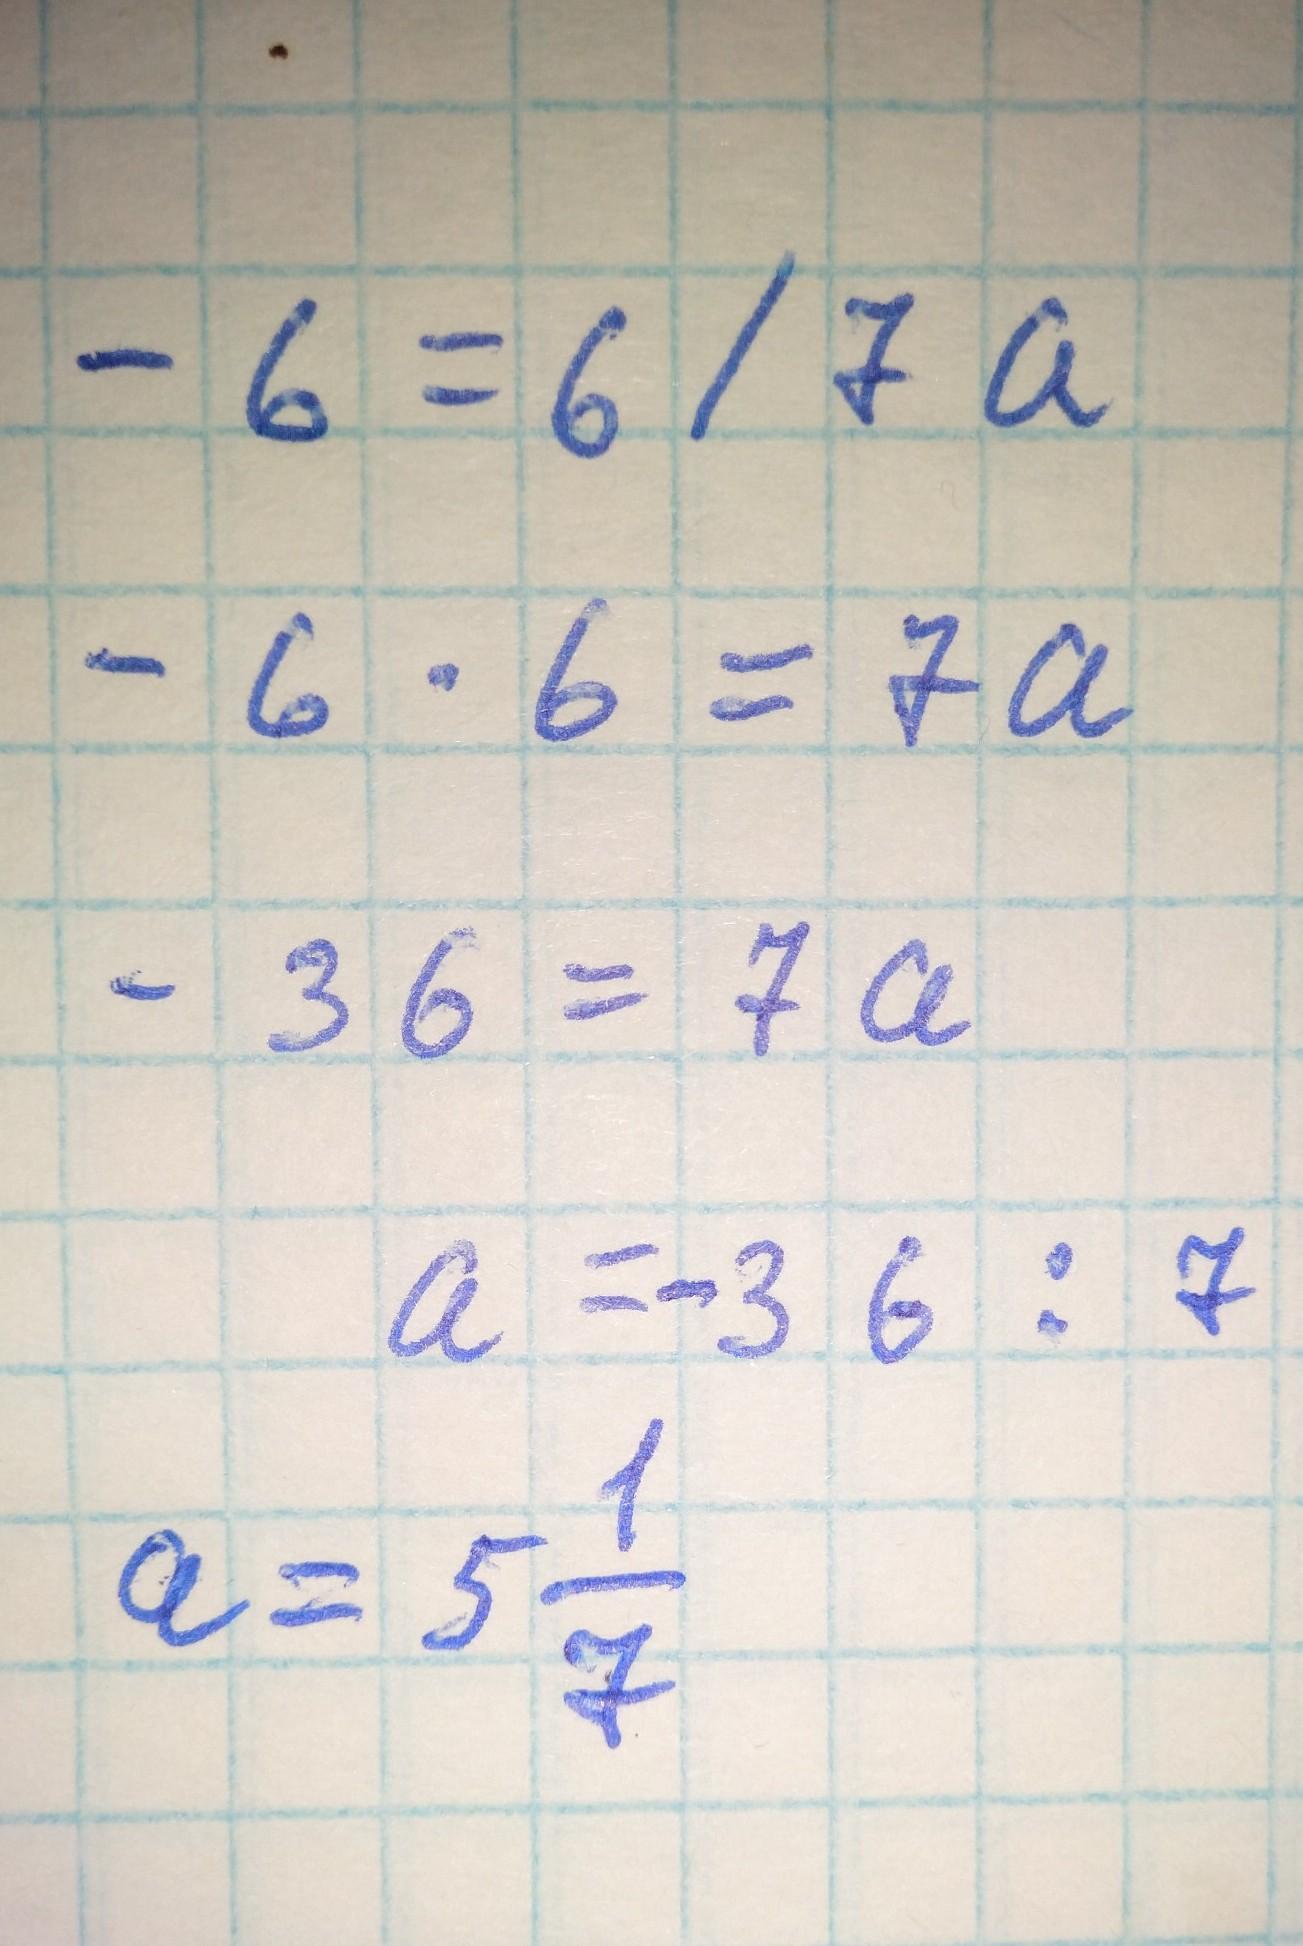 - 6 = 6 / 7 a
- 6 · 6 = 7 a
- 36 = 7 a
a = - 36 : 7
a = 5 1/7